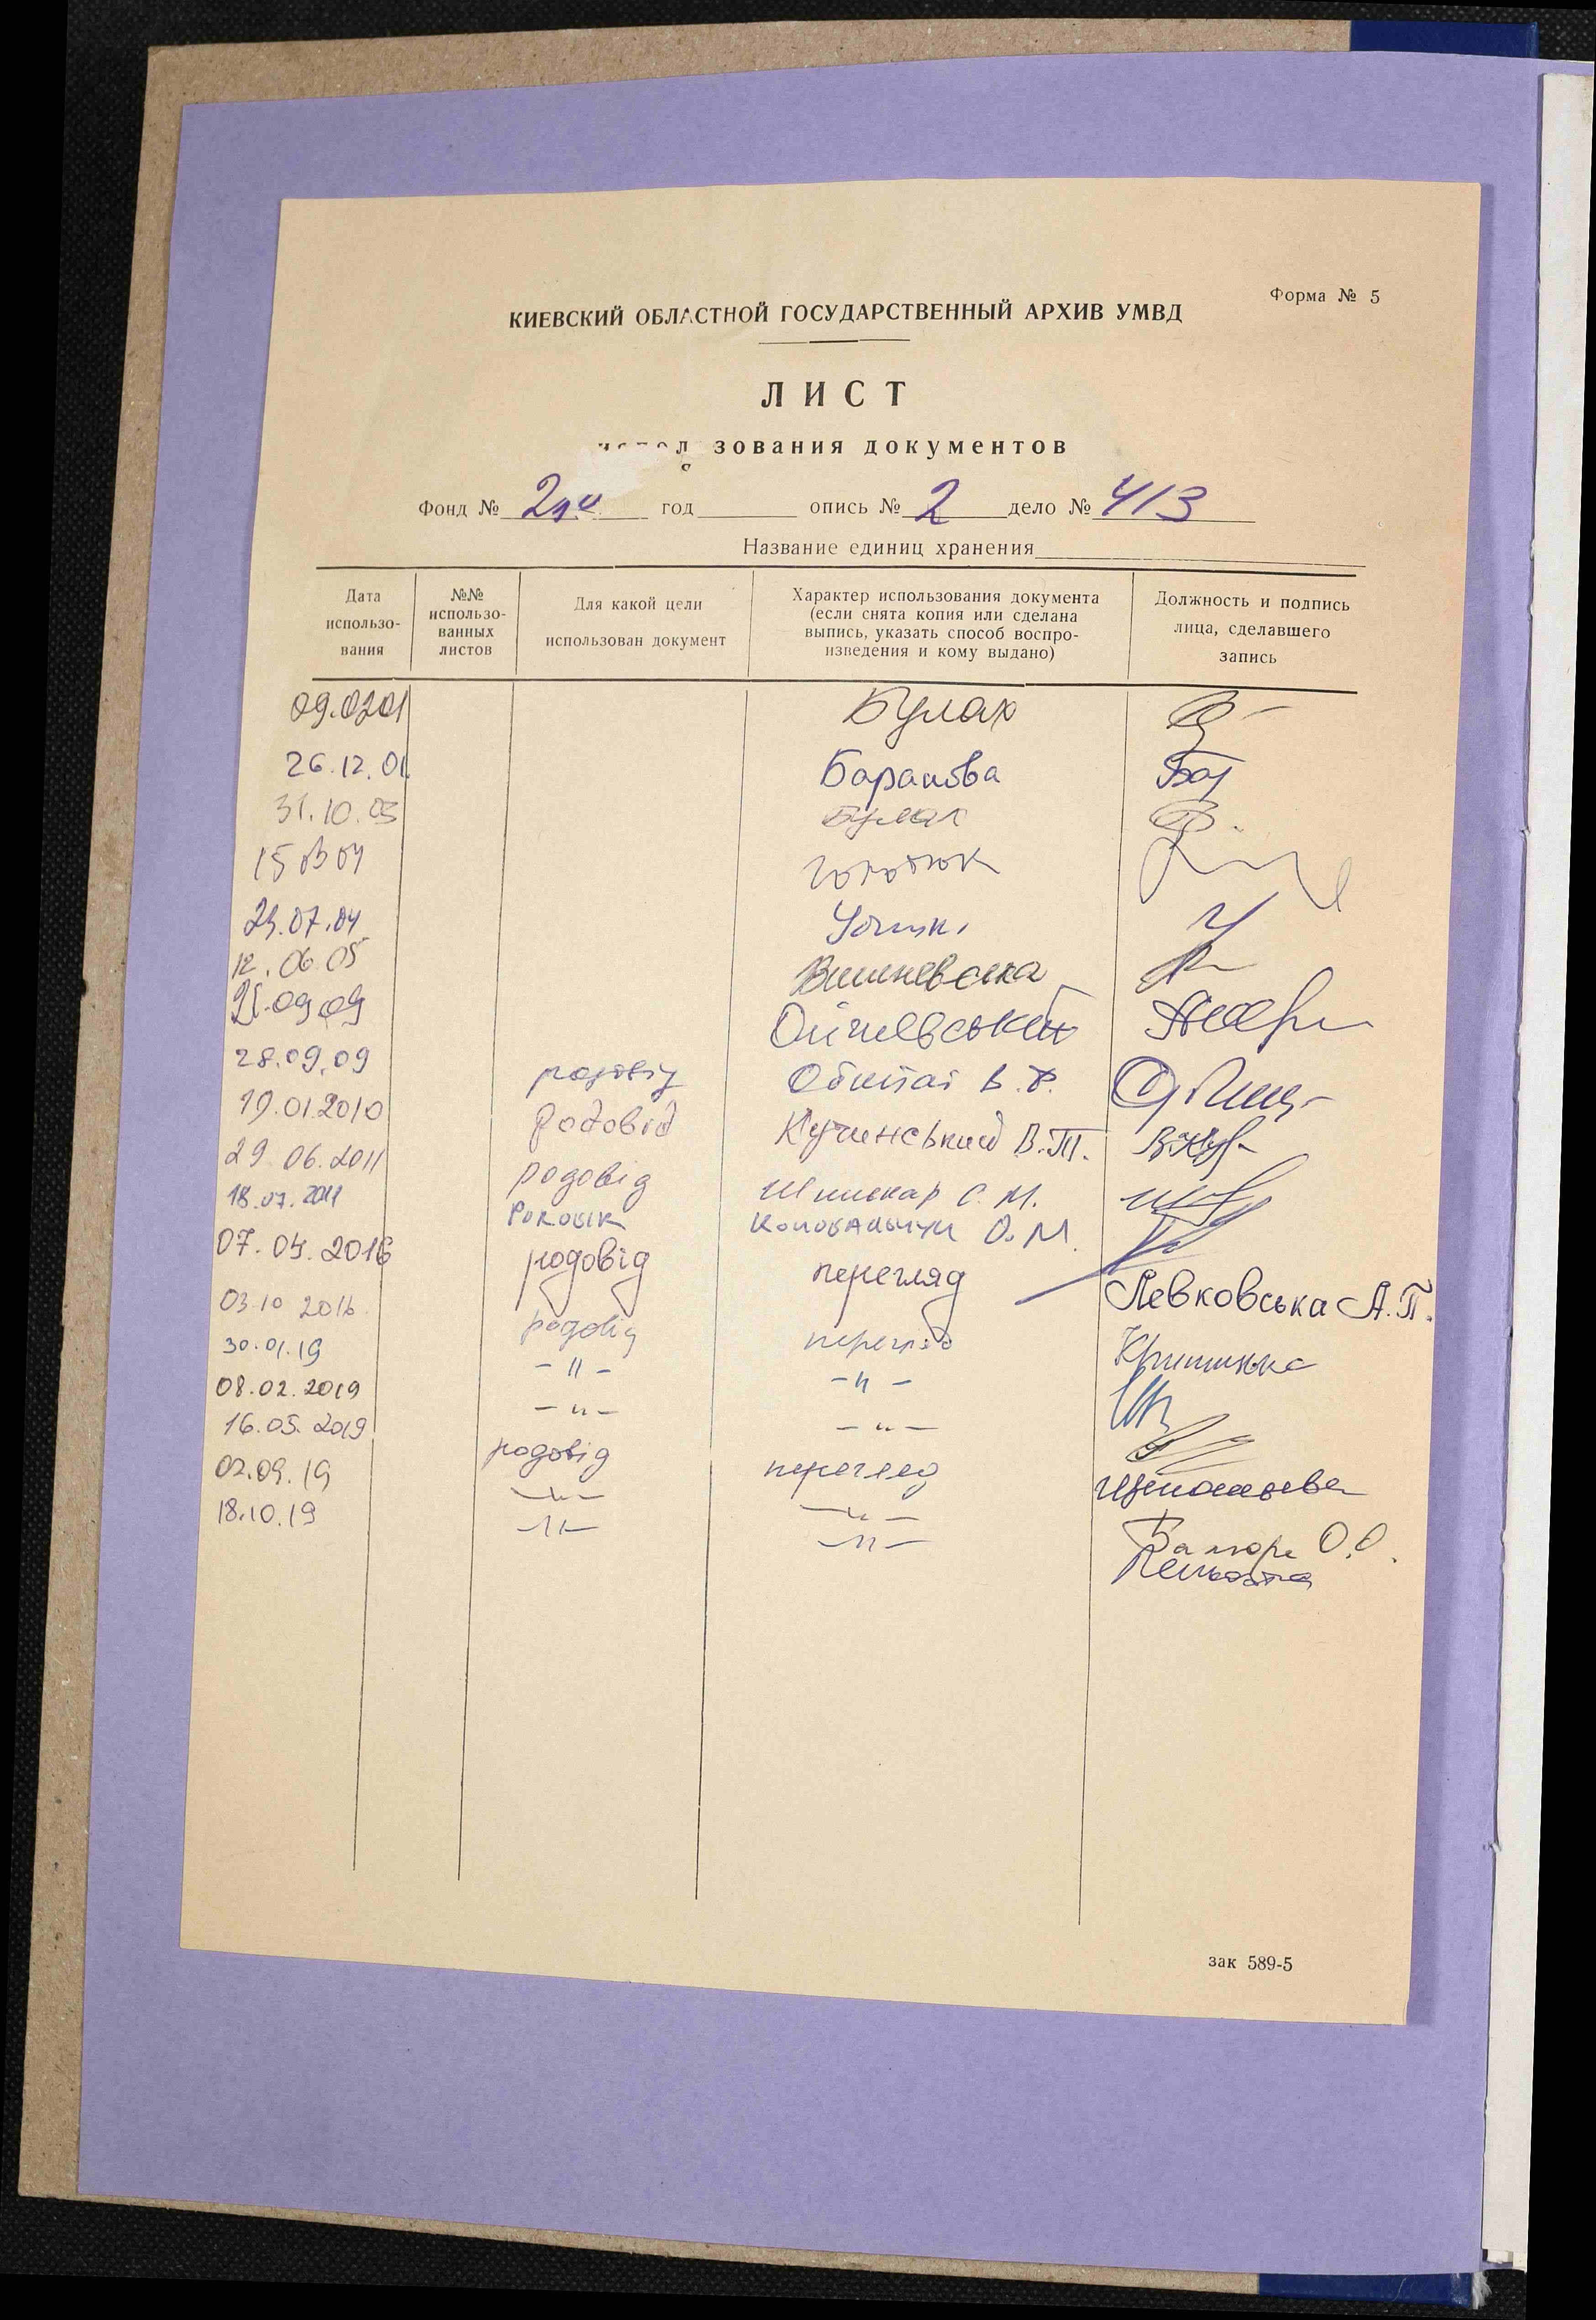 Форма № 5
КИЕВСКИЙ ОБЛАСТНОЙ ГОСУДАРСТВЕННЫЙ АРХИВ УМВД
ЛИСТ
зования документов
Фонд № год опись № 2 дело № 413
Название единиц хранения
Дата использо- вания
№№ использо- ванных листов
Для какой цели использован документ
Характер использования документа (если снята копия или сделана выпись, указать способ воспро- изведения и кому выдано)
Должность и подпись лица, сделавшего запись
09.0201 Булах
26.12.01. Баранова
31.10.03 Булах
15 03 04
23.07.04
12.06.05 Вишневська
21.09.09
28.09.09 родовід
19.01.2010 Родовід Кучинський В.Т.
29.06.2011 родовід Шинкар С.М.
18.07.2011 О.М.
07.04.2016 родовід перегляд Левковська А.П.
03.10 2016 родовід перегляд
30.01.19 -"- -"-
08.02.2019 -"- -"-
16.05.2019 родовід перегляд
02.09.19 -"- -"- О.О.
18.10.19 -"- -"-
зак 589-5